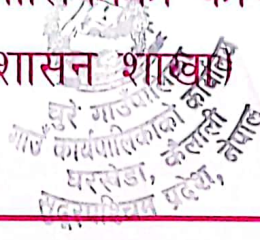 शासन शाखा)
चुरे गाउँपालिका
गाउँ कार्यपालिकाको कार्यालय
घरखेडा, कैलाली
सुदूरपश्चिम प्रदेश, नेपाल